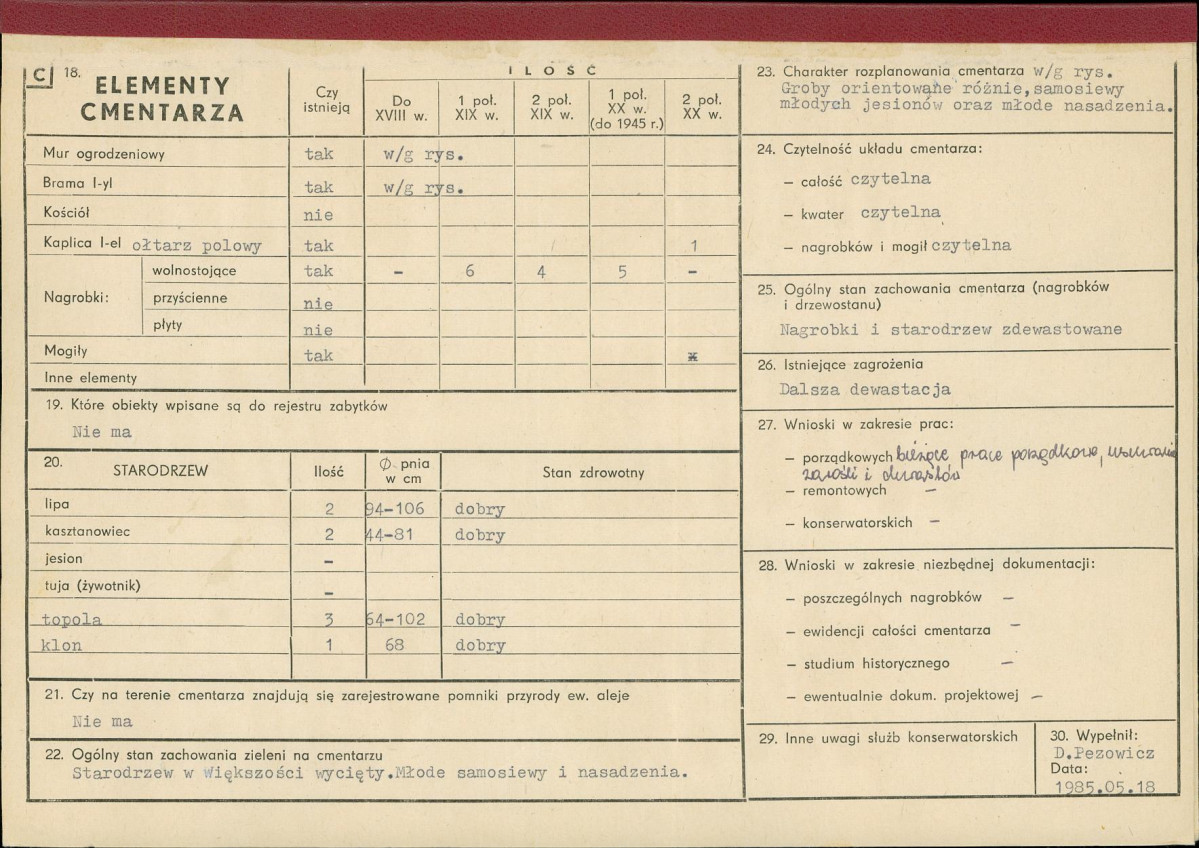 C 18. ELEMENTY CMENTARZA
Czy istnieją
ILOŚĆ
Do XVIII w.
1 poł. XIX w.
2 poł. XIX w.
1 poł. XX w. (do 1945 r.)
2 poł. XX w.
Mur ogrodzeniowy tak w/g rys.
Brama I-yl tak w/g rys.
Kościół nie
Kaplica I-el ołtarz polowy tak 1
Nagrobki:
wolnostojące tak – 6 4 5 –
przyścienne nie
płyty nie
Mogiły tak x
Inne elementy
19. Które obiekty wpisane są do rejestru zabytków
Nie ma
20. STARODRZEW Ilość Ø pnia w cm Stan zdrowotny
lipa 2 94-106 dobry
kasztanowiec 2 44-81 dobry
jesion –
tuja (żywotnik) –
topola 3 64-102 dobry
klon 1 68 dobry
21. Czy na terenie cmentarza znajdują się zarejestrowane pomniki przyrody ew. aleje
Nie ma
22. Ogólny stan zachowania zieleni na cmentarzu
Starodrzew w Większości wycięty.Młode samosiewy i nasadzenia.
23. Charakter rozplanowania cmentarza w/g rys.
Groby orientowane różnie,samosiewy
młodych jesionów oraz młode nasadzenia.
24. Czytelność układu cmentarza:
– całość czytelna
– kwater czytelna
– nagrobków i mogił czytelna
25. Ogólny stan zachowania cmentarza (nagrobków
i drzewostanu)
Nagrobki i starodrzew zdewastowane
26. Istniejące zagrożenia
Dalsza dewastacja
27. Wnioski w zakresie prac:
– porządkowych bieżące prace porządkowe, usuwanie
zarośli i chwastów
– remontowych –
– konserwatorskich –
28. Wnioski w zakresie niezbędnej dokumentacji:
– poszczególnych nagrobków –
– ewidencji całości cmentarza –
– studium historycznego –
– ewentualnie dokum. projektowej –
29. Inne uwagi służb konserwatorskich
30. Wypełnił:
D.Pezowicz
Data:
1985.05.18